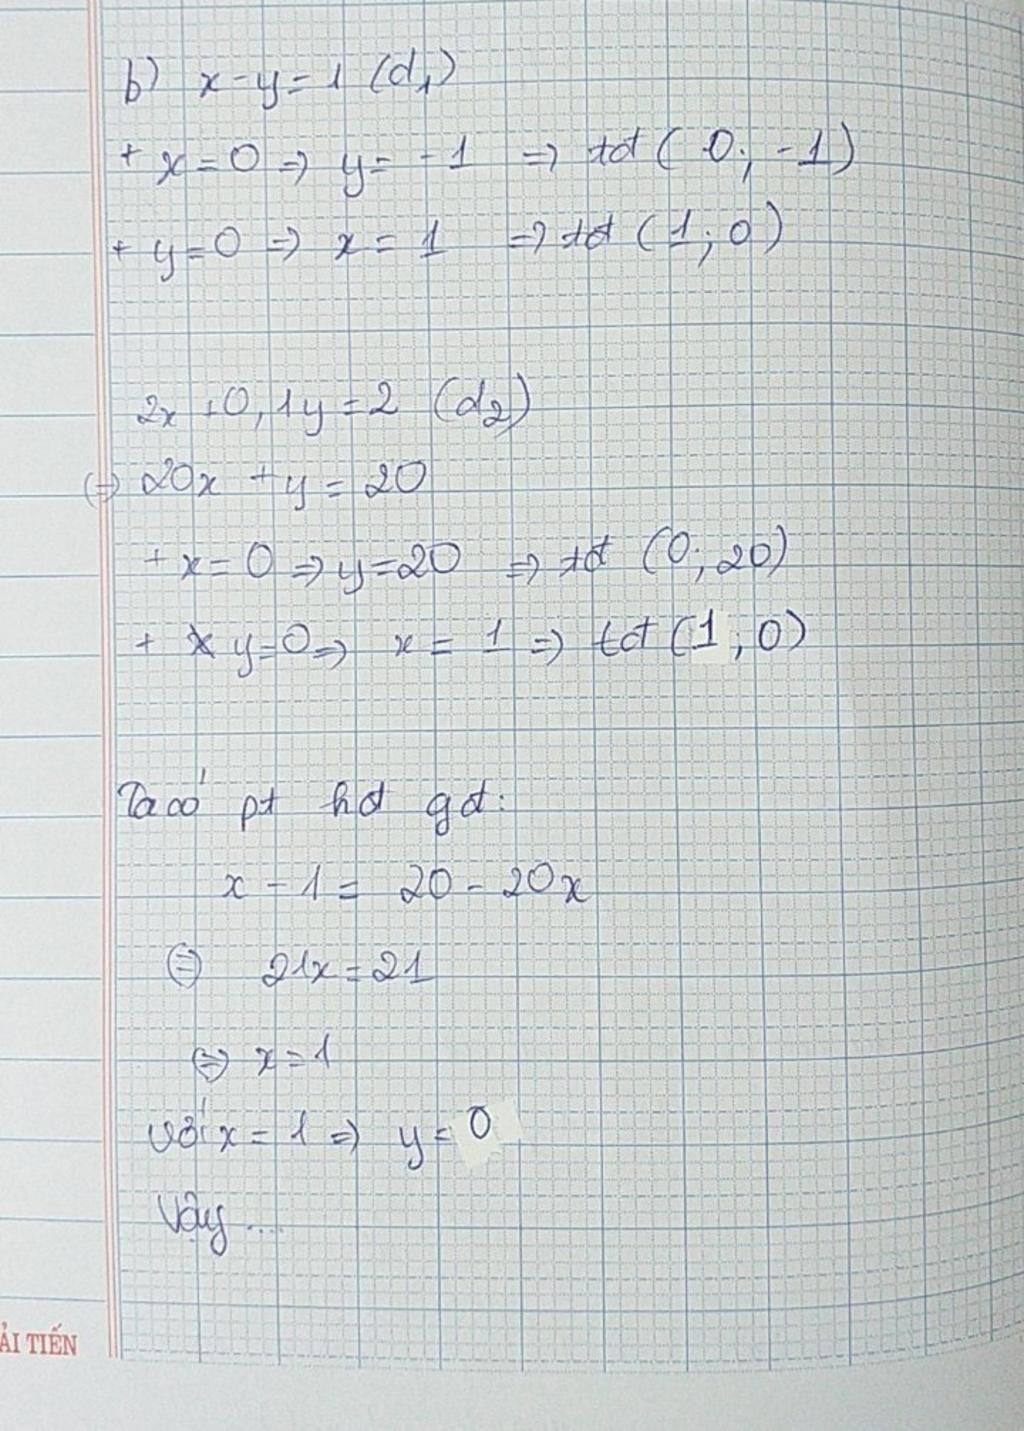 b) x - y = 1 (d₁)
+ x = 0 => y = -1 => tđ (0; -1)
+ y = 0 => x = 1 => tđ (1; 0)
2x + 0,1y = 2 (d₂)
(=) 20x + y = 20
+ x = 0 => y = 20 => tđ (0; 20)
+ y = 0 => x = 1 => tđ (1; 0)
Ta có pt hđ gđ:
x - 1 = 20 - 20x
(=) 21x = 21
(=) x = 1
với x = 1 => y = 0
Vậy ...
ẢI TIẾN